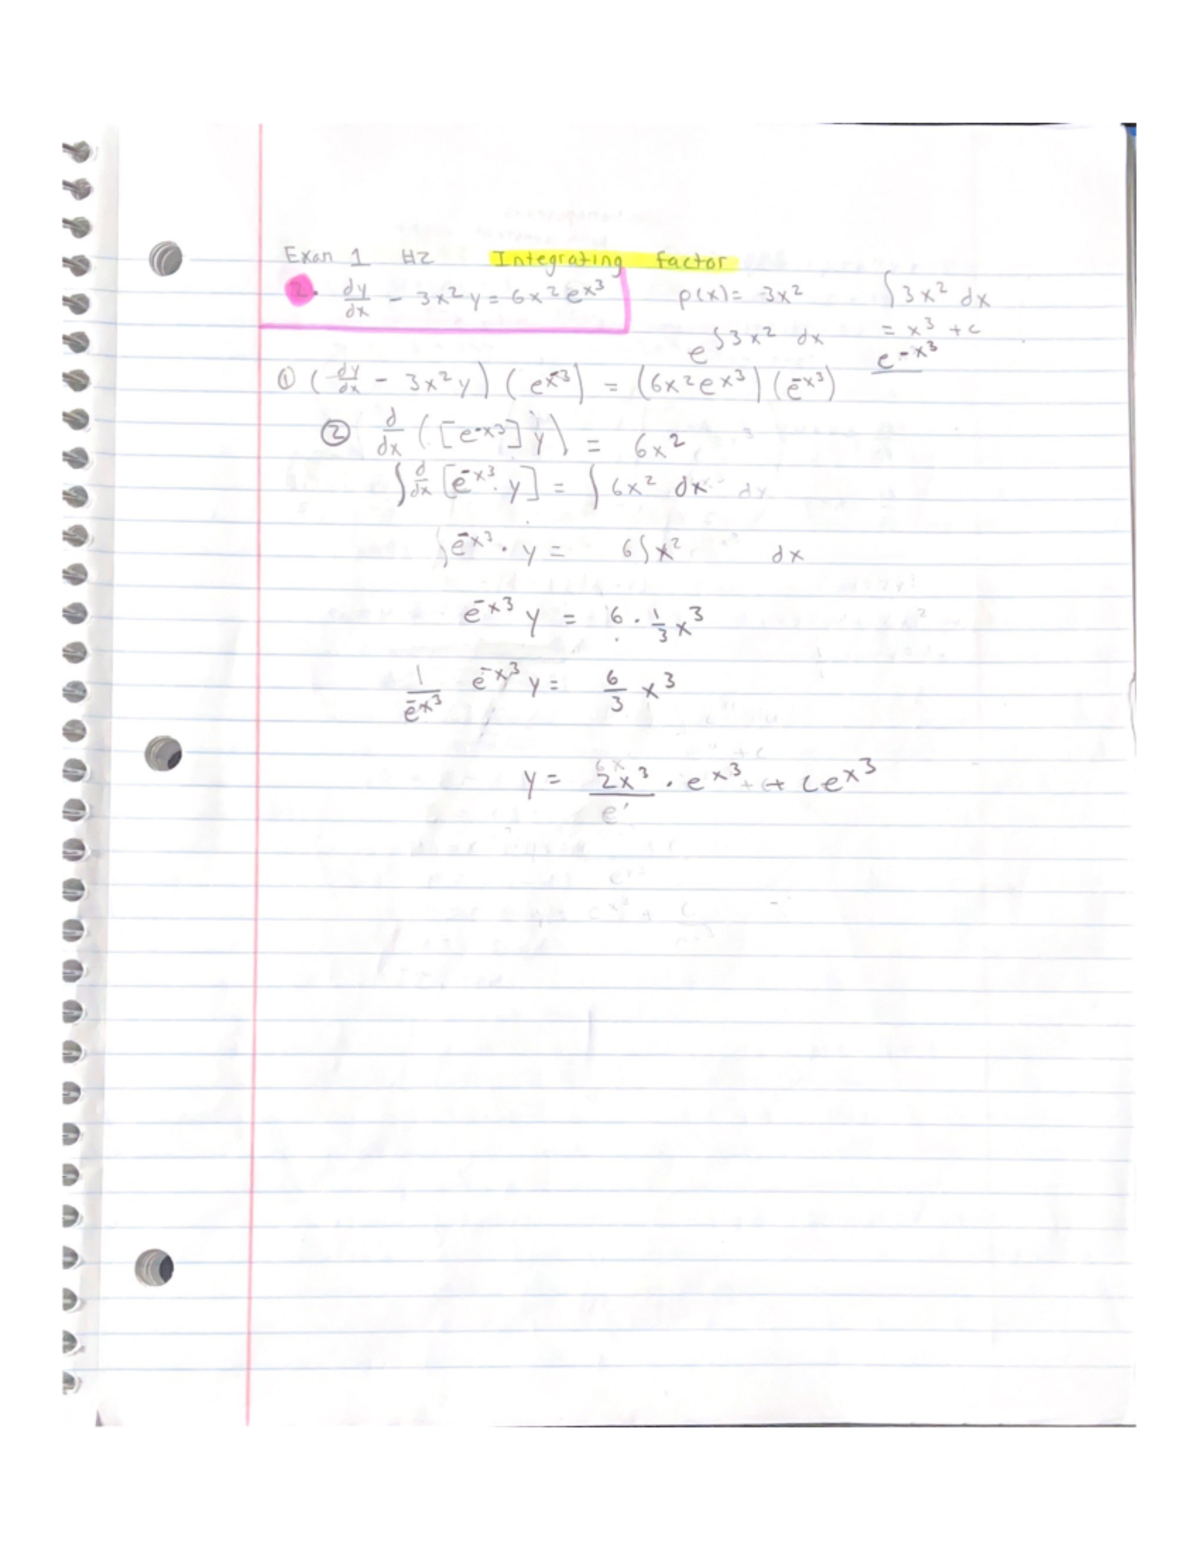 Exan 1 H2 Integrating factor
2. dy/dx - 3x² y = 6x² e^x³ p(x) = -3x² ∫3x² dx
e^∫3x² dx = x³ + c
e^-x³
① (dy/dx - 3x² y) (e^-x³) = (6x² e^x³) (e^-x³)
② d/dx ([e^-x³] y) = 6x²
∫ d/dx [e^-x³ · y] = ∫ 6x² dx
∫e^-x³ · y = 6∫x² dx
e^-x³ y = 6 · 1/3 x³
1/e^-x³ e^-x³ y = 6/3 x³
y = 2x³ · e^x³ + Ce^x³